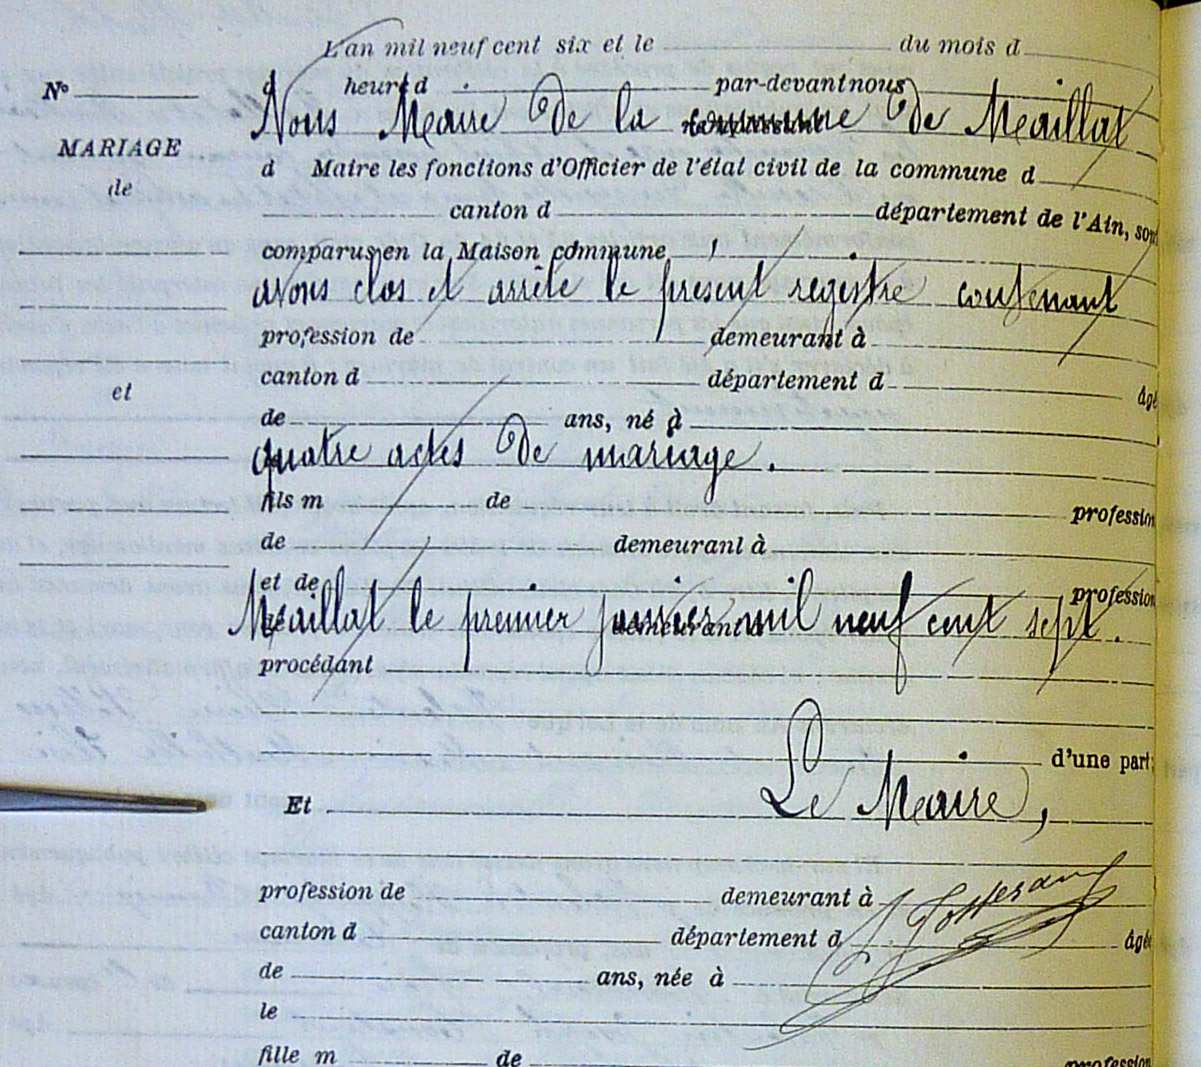 L'an mil neuf cent six et le du mois d
No heure d par-devant nous
Nous Maire de la commune de Maillat
MARIAGE
d Maire les fonctions d'Officier de l'état civil de la commune d
de
canton d département de l'Ain, sont
comparus en la Maison commune,
avons clos et arrêté le présent registre contenant
profession de demeurant à
canton d département d âgé
et
de ans, né à
quatre actes de mariage.
fils m de profession
de demeurant à
et de profession
Maillat le premier janvier mil neuf cent sept.
de demeurant à
procédant
d'une part;
Le Maire,
Et
profession de demeurant à
canton d département d âgée
de ans, née à
le
fille m de profession